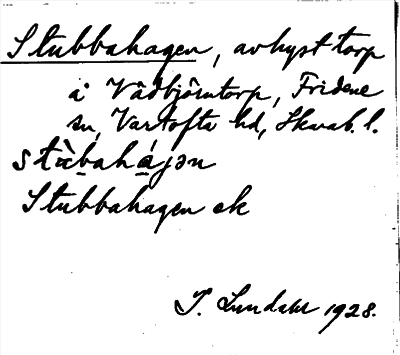 Stubbahagen, avhyst torp
å Vådbjörntorp, Fridene
sn, Vartofta hd, Skarab. l.
stùb̲ah̲á̲jən
Stubbahagen ek
S. Lundahl 1928.